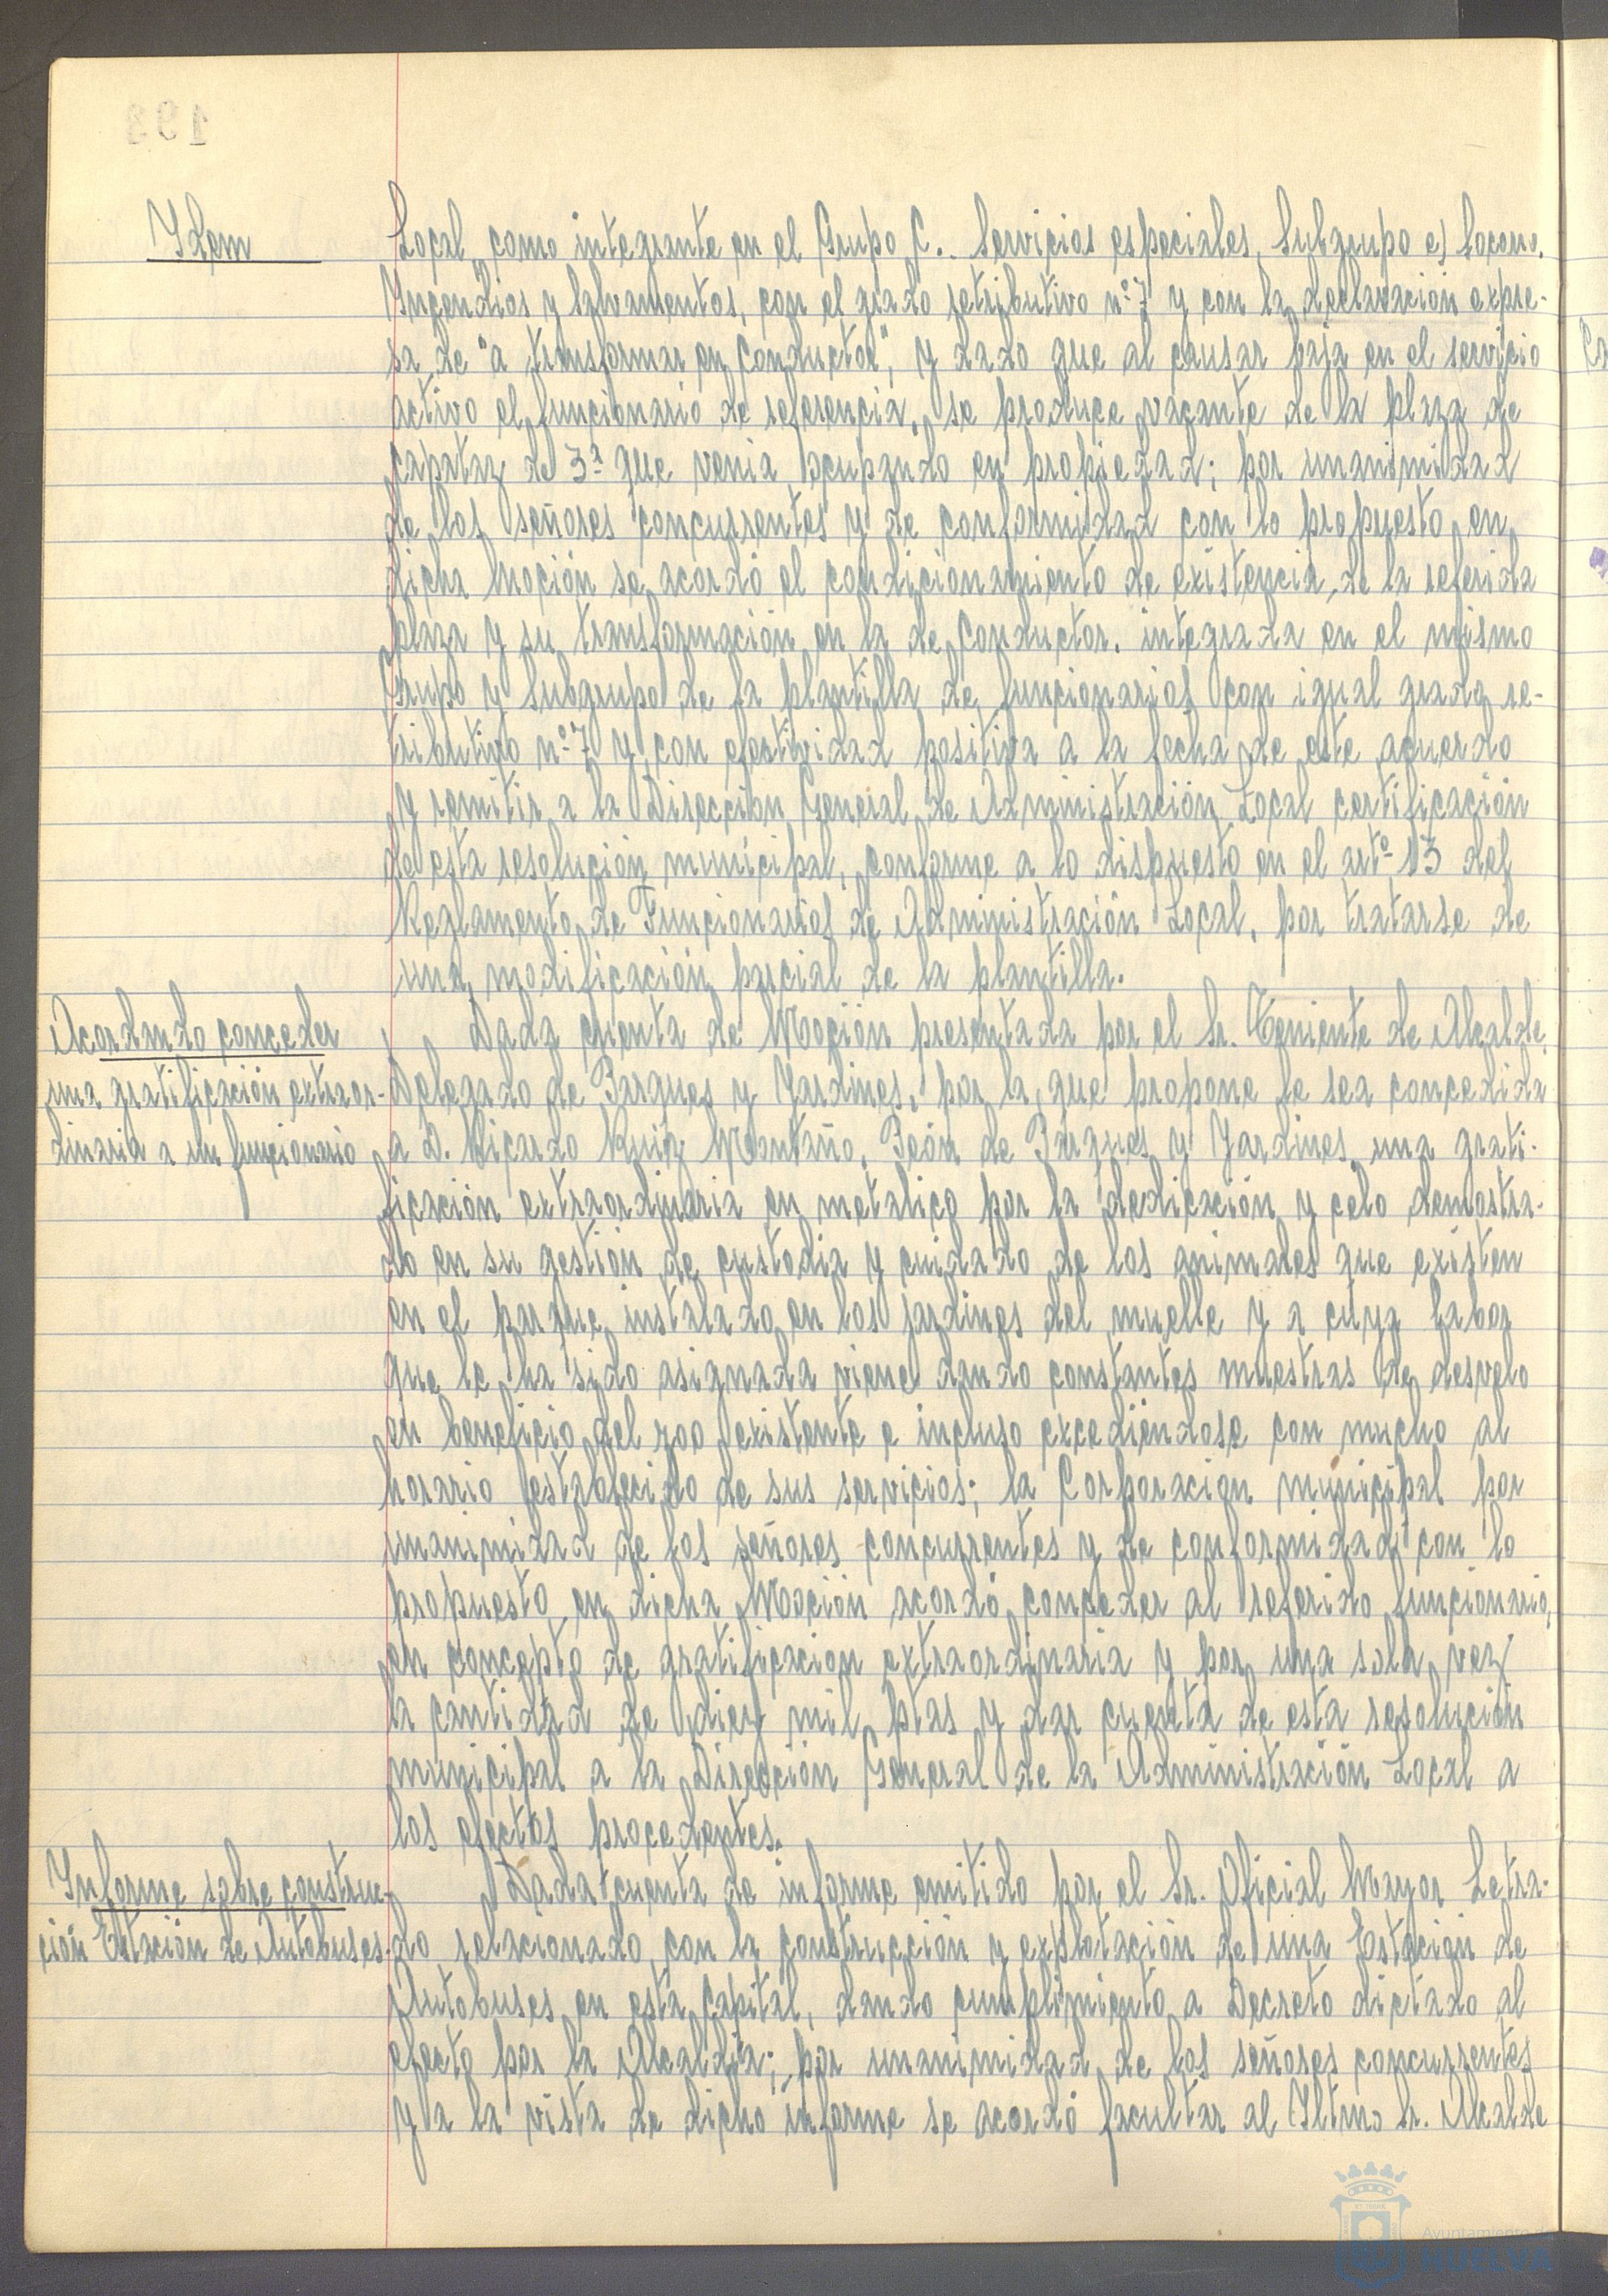 Idem
Local, como integrante en el Grupo C.. Servicios especiales, Subgrupo e)
Incendios y Salvamentos, con el grado retributivo nº 7 y con la declaración expre-
sa de "a transformar en Conductor", y dado que al causar baja en el servicio
activo el funcionario de referencia, se produce vacante de la plaza de
Capataz de 3ª que venia ocupando en propiedad; por unanimidad
de los señores concurrentes y de conformidad con lo propuesto en
dicha Moción se acordó el condicionamiento de existencia, de la referida
plaza y su transformación en la de Conductor, integrada en el mismo
Grupo y Subgrupo de la plantilla de funcionarios con igual grado re-
tributivo nº 7 y con efectividad positiva a la fecha de este acuerdo
y remitir a la Dirección General de Administración Local certificación
de esta resolución municipal, conforme a lo dispuesto en el artº 13 del
Reglamento de Funcionarios de Administración Local, por tratarse de
una modificación parcial de la plantilla.
Acordando conceder
una gratificación extraor-
dinaria a un funcionario
Dada cuenta de Moción presentada por el Sr. Teniente de Alcalde
Delegado de Parques y Jardines, por la que propone le sea concedida
a D. Ricardo Ruiz Montaño, Peón de Parques y Jardines una grati-
ficación extraordinaria en metalico por la dedicación y celo demostra-
do en su gestión de custodia y cuidado de los animales que existen
en el parque instalado en los jardines del muelle y a cuya labor
que le ha sido asignada viene dando constantes muestras de desvelo
en beneficio del zoo existente e incluso excediendose con mucho al
horario establecido de sus servicios; la Corporación municipal por
unanimidad de los señores concurrentes y de conformidad con lo
propuesto en dicha Moción acordó conceder al referido funcionario,
en concepto de gratificación extraordinaria y por una sola vez
la cantidad de diez mil ptas y dar cuenta de esta resolución
municipal a la Dirección General de la Administración Local a
los efectos procedentes.
Informe sobre construc-
ción Estación de Autobuses
Dada cuenta de informe emitido por el Sr. Oficial Mayor Letra-
do relacionado con la construcción y explotación de una Estación de
Autobuses en esta Capital, dando cumplimiento a Decreto dictado al
efecto por la Alcaldia; por unanimidad de los señores concurrentes
y a la vista de dicho informe se acordó facultar al Iltmo Sr. Alcalde
Ayuntamiento de
HUELVA